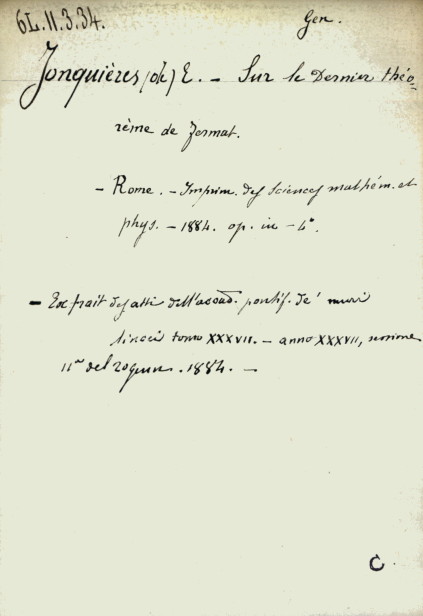 6L.11.3.34.
Gen.
Jonquières (de) E. – Sur le Dernier théo-
rème de Fermat.
– Rome. – Imprim. des sciences mathém. et
phys. – 1884. op. in – 4°.
– Extrait des atti dell'accad. pontif. de' nuovi
lincei tomo XXXVII. – anno XXXVII, sessione
del 20 genn. 1884. –
C